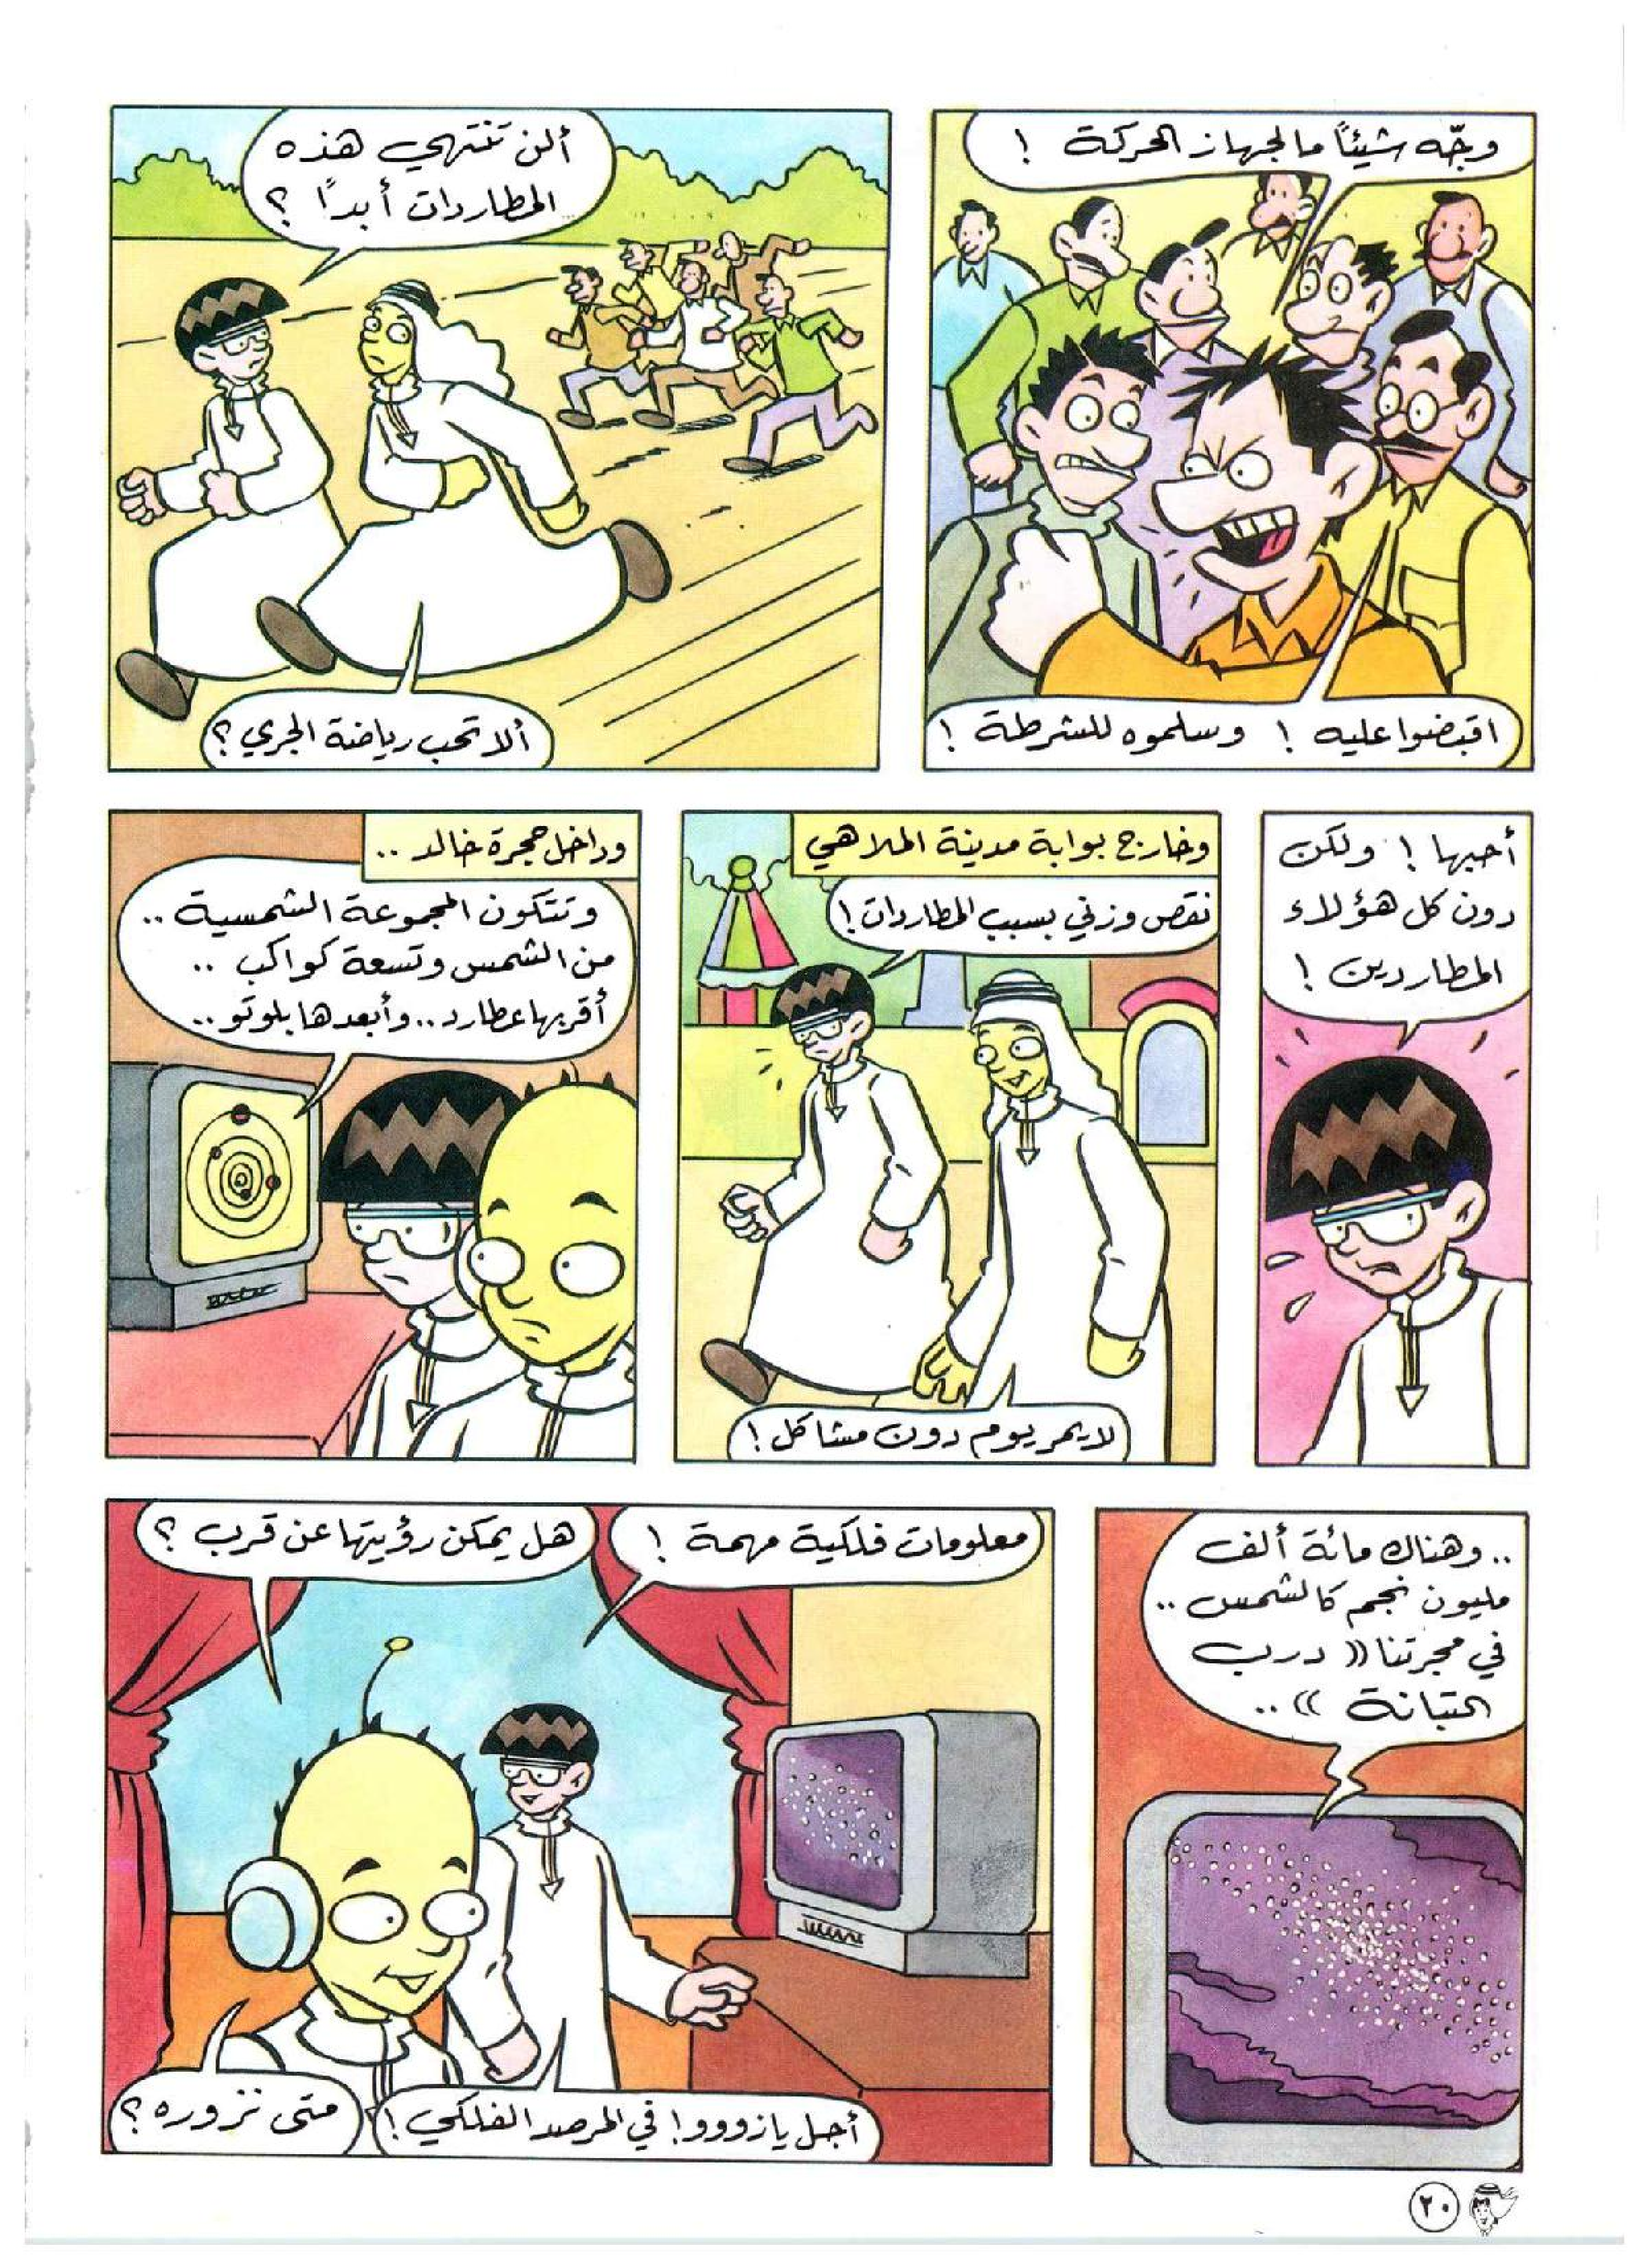 وجّه شيئًا ما لجهاز الحركة !
اقبضوا عليه ! وسلموه للشرطة !
ألن تنتهي هذه
المطاردات أبدًا ؟
ألا تحب رياضة الجري ؟
أحبها ! ولكن
دون كل هؤلاء
المطاردين !
وخارج بوابة مدينة الملاهي
نقص وزني بسبب المطاردات !
لا يمر يوم دون مشاكل !
وداخل حجرة خالد ..
وتتكون المجموعة الشمسية ..
من الشمس وتسعة كواكب ..
أقربها عطارد .. وأبعدها بلوتو ..
.. وهناك مائة ألف
مليون نجم كالشمس ..
في مجرتنا (( درب
التبانة )) ..
معلومات فلكية مهمة !
هل يمكن رؤيتها عن قرب ؟
أجل يا زووو ! في المرصد الفلكي !
متى نزوره ؟
٢٠